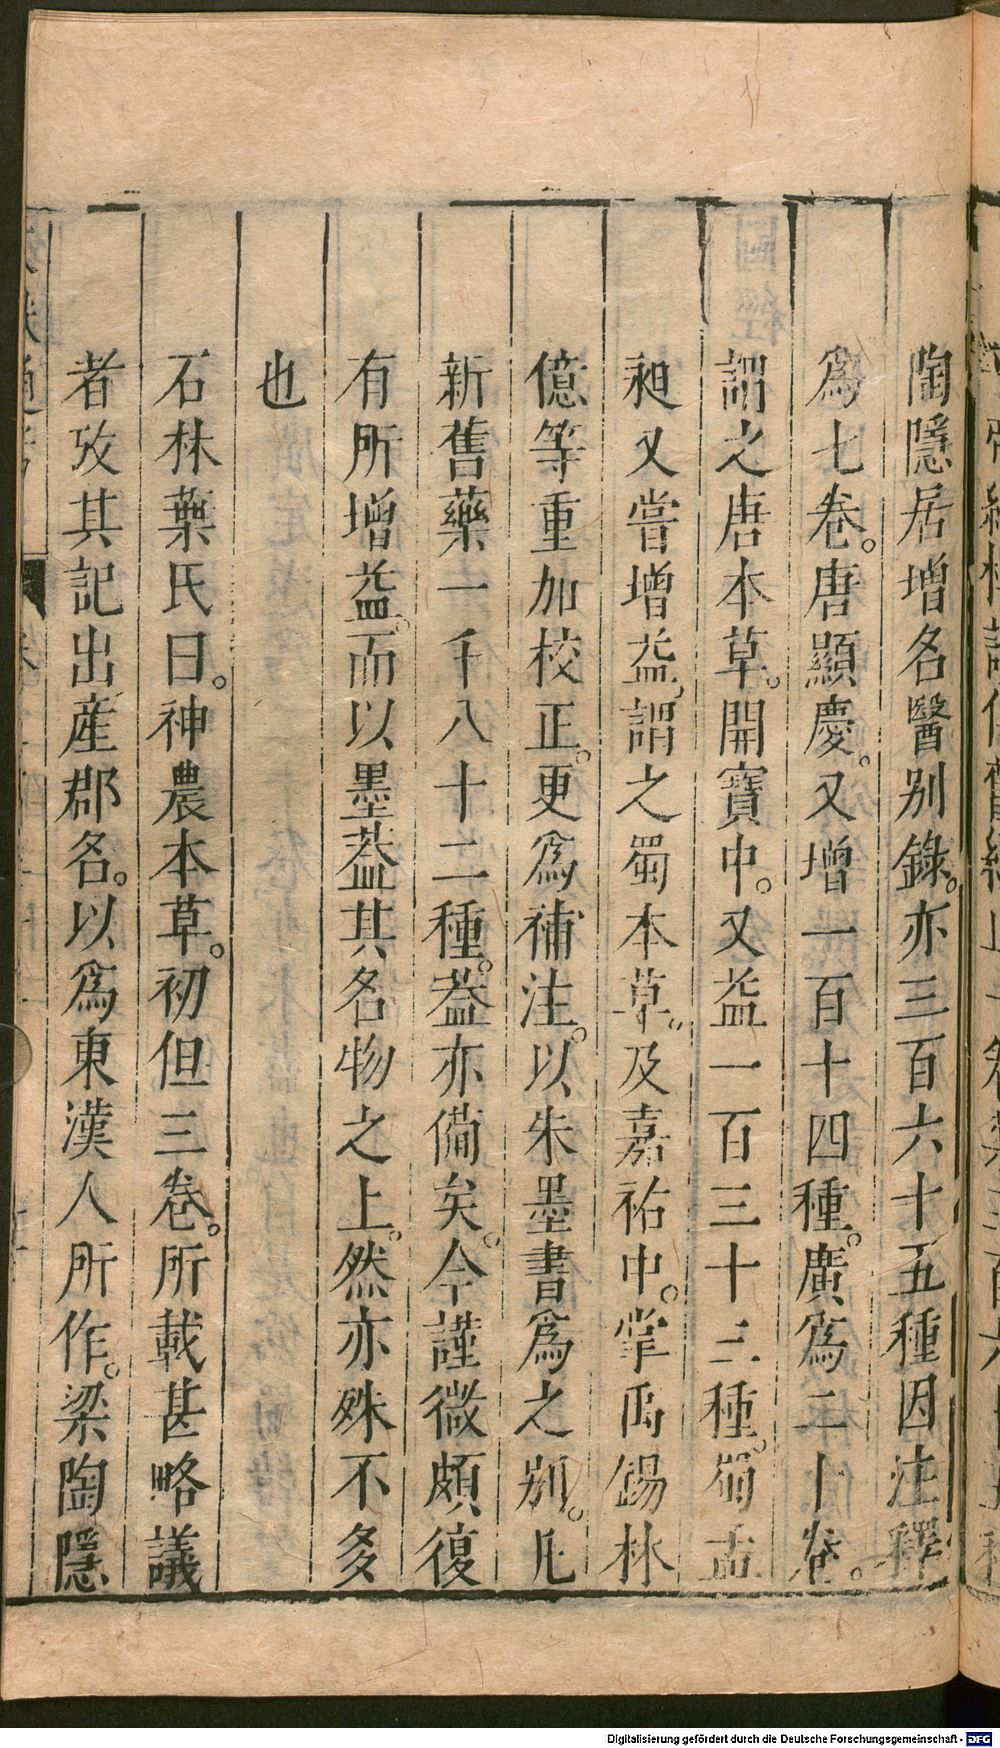 陶隱居增名醫別錄。亦三百六十五種因注釋
爲七卷。唐顯慶。又增一百十四種。廣爲二十卷。
謂之唐本草。開寶中。又益一百三十三種。蜀孟
昶又嘗增益。謂之蜀本草。及嘉祐中。掌禹錫林
億等重加校正。更爲補注。以朱墨書爲之別。凡
新舊藥一千八十二種。葢亦備矣。今謹微頗復
有所增益。而以墨葢其名物之上。然亦殊不多
也
石林葉氏曰。神農本草。初但三卷。所載甚略議
者攷其記出産郡名。以爲東漢人所作。梁陶隱
Digitalisierung gefördert durch die Deutsche Forschungsgemeinschaft - DFG